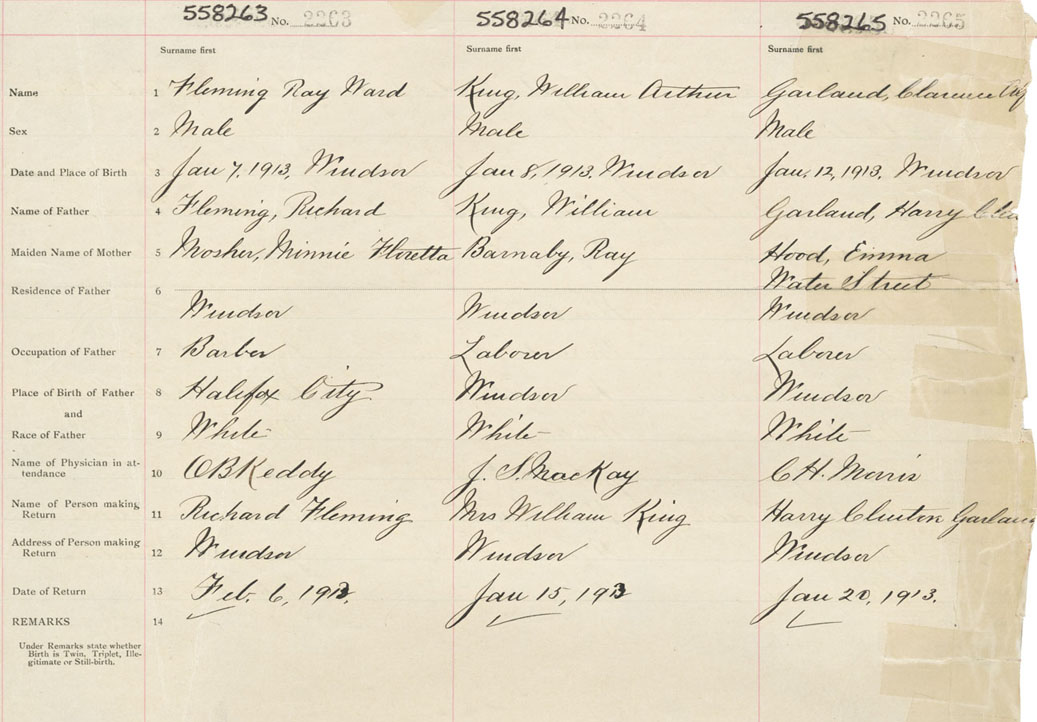 558263 No. 2263 558264 No. 2264 558265 No. 2265
Surname first Surname first Surname first
Name 1 Fleming Ray Ward King, William Arthur Garland, Clarence
Sex 2 Male Male Male
Date and Place of Birth 3 Jan 7, 1913, Windsor Jan 8, 1913. Windsor Jan. 12, 1913. Windsor
Name of Father 4 Fleming, Richard King, William Garland, Harry
Maiden Name of Mother 5 Mosher, Minnie Floretta Barnaby, Ray Hood, Emma
Water Street
Residence of Father 6
Windsor Windsor Windsor
Occupation of Father 7 Barber Laborer Laborer
Place of Birth of Father 8 Halifax City Windsor Windsor
and
Race of Father 9 White White White
Name of Physician in at-
tendance 10 O B Keddy J. S. MacKay C H. Morris
Name of Person making
Return 11 Richard Fleming Mrs William King Harry Clinton Garland
Address of Person making
Return 12 Windsor Windsor Windsor
Date of Return 13 Feb. 6, 1913. Jan 15, 1913 Jan 20, 1913.
REMARKS 14
Under Remarks state whether
Birth is Twin, Triplet, Ille-
gitimate or Still-birth.